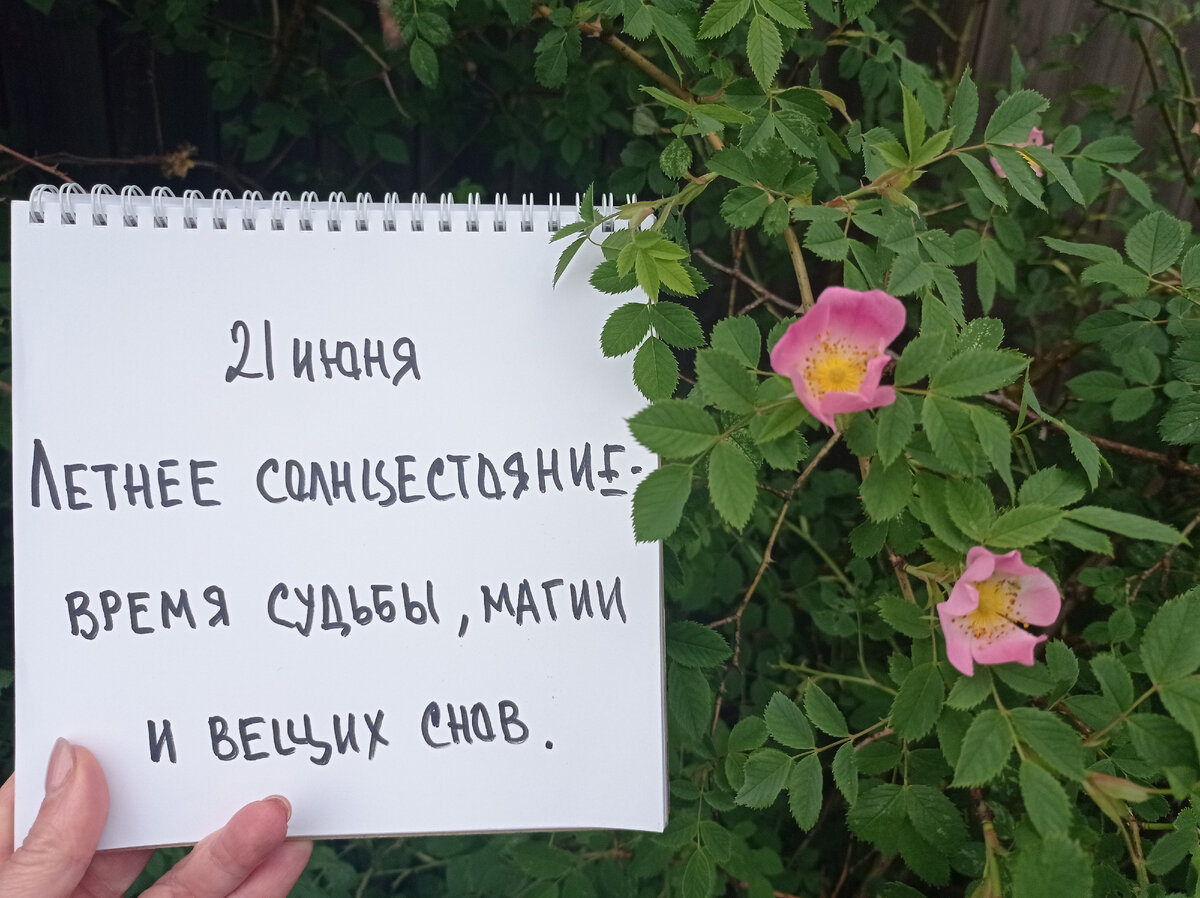 21 июня
Летнее солнцестояние-
время судьбы, магии
и вещих снов.